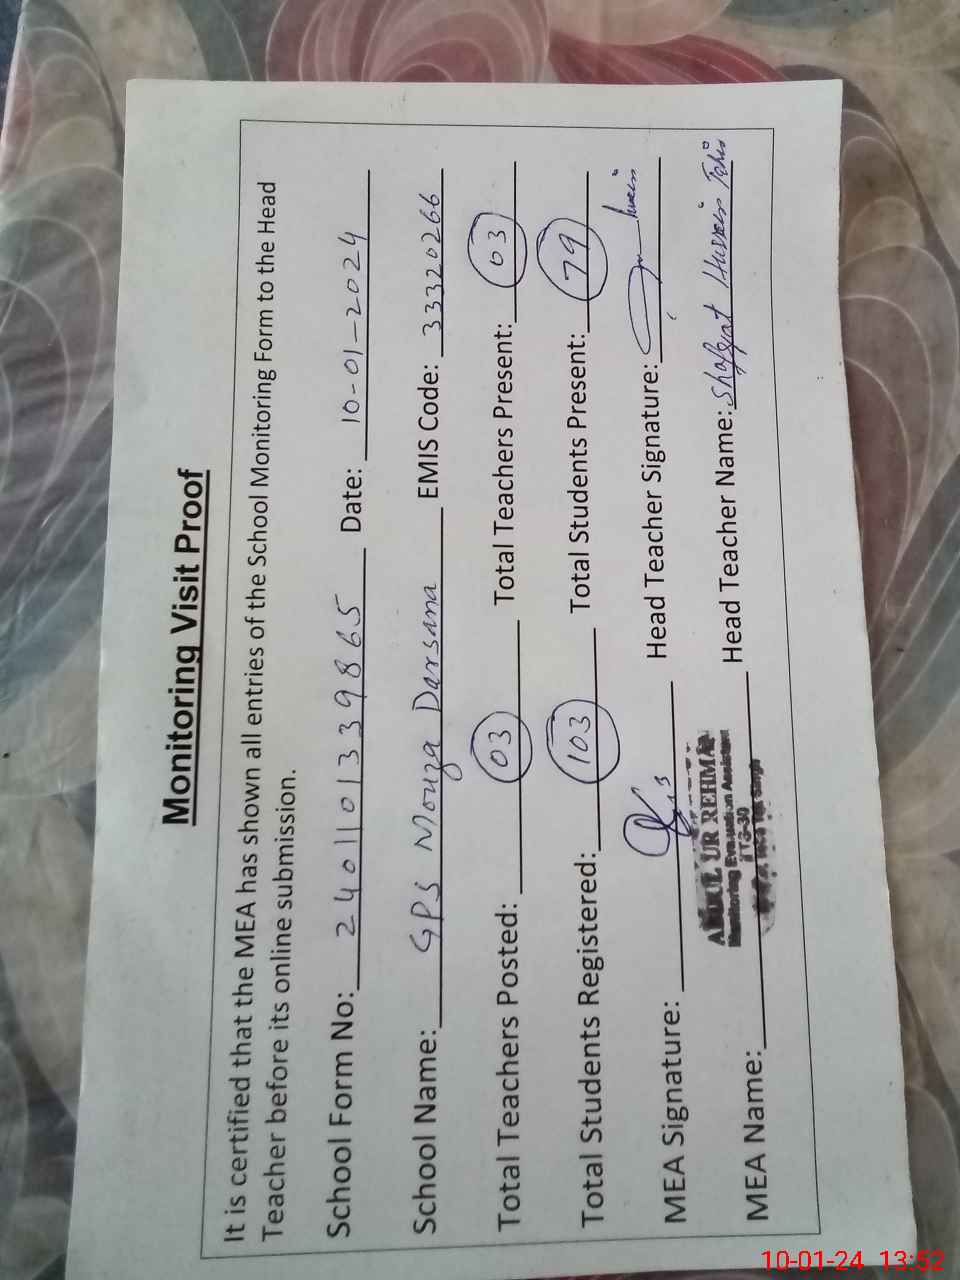 Monitoring Visit Proof
It is certified that the MEA has shown all entries of the School Monitoring Form to the Head
Teacher before its online submission.
School Form No: 2401101339865 Date: 10-01-2024
School Name: GPS Mouza Darsana EMIS Code: 33320266
Total Teachers Posted: 03 Total Teachers Present: 03
Total Students Registered: 103 Total Students Present: 79
MEA Signature: Head Teacher Signature:
ABDUL UR REHMAN
Monitoring Evaluation Assistant
TTS-30
MEA Name: Head Teacher Name: Shafqat Hussain Tahir
10-01-24 13:52